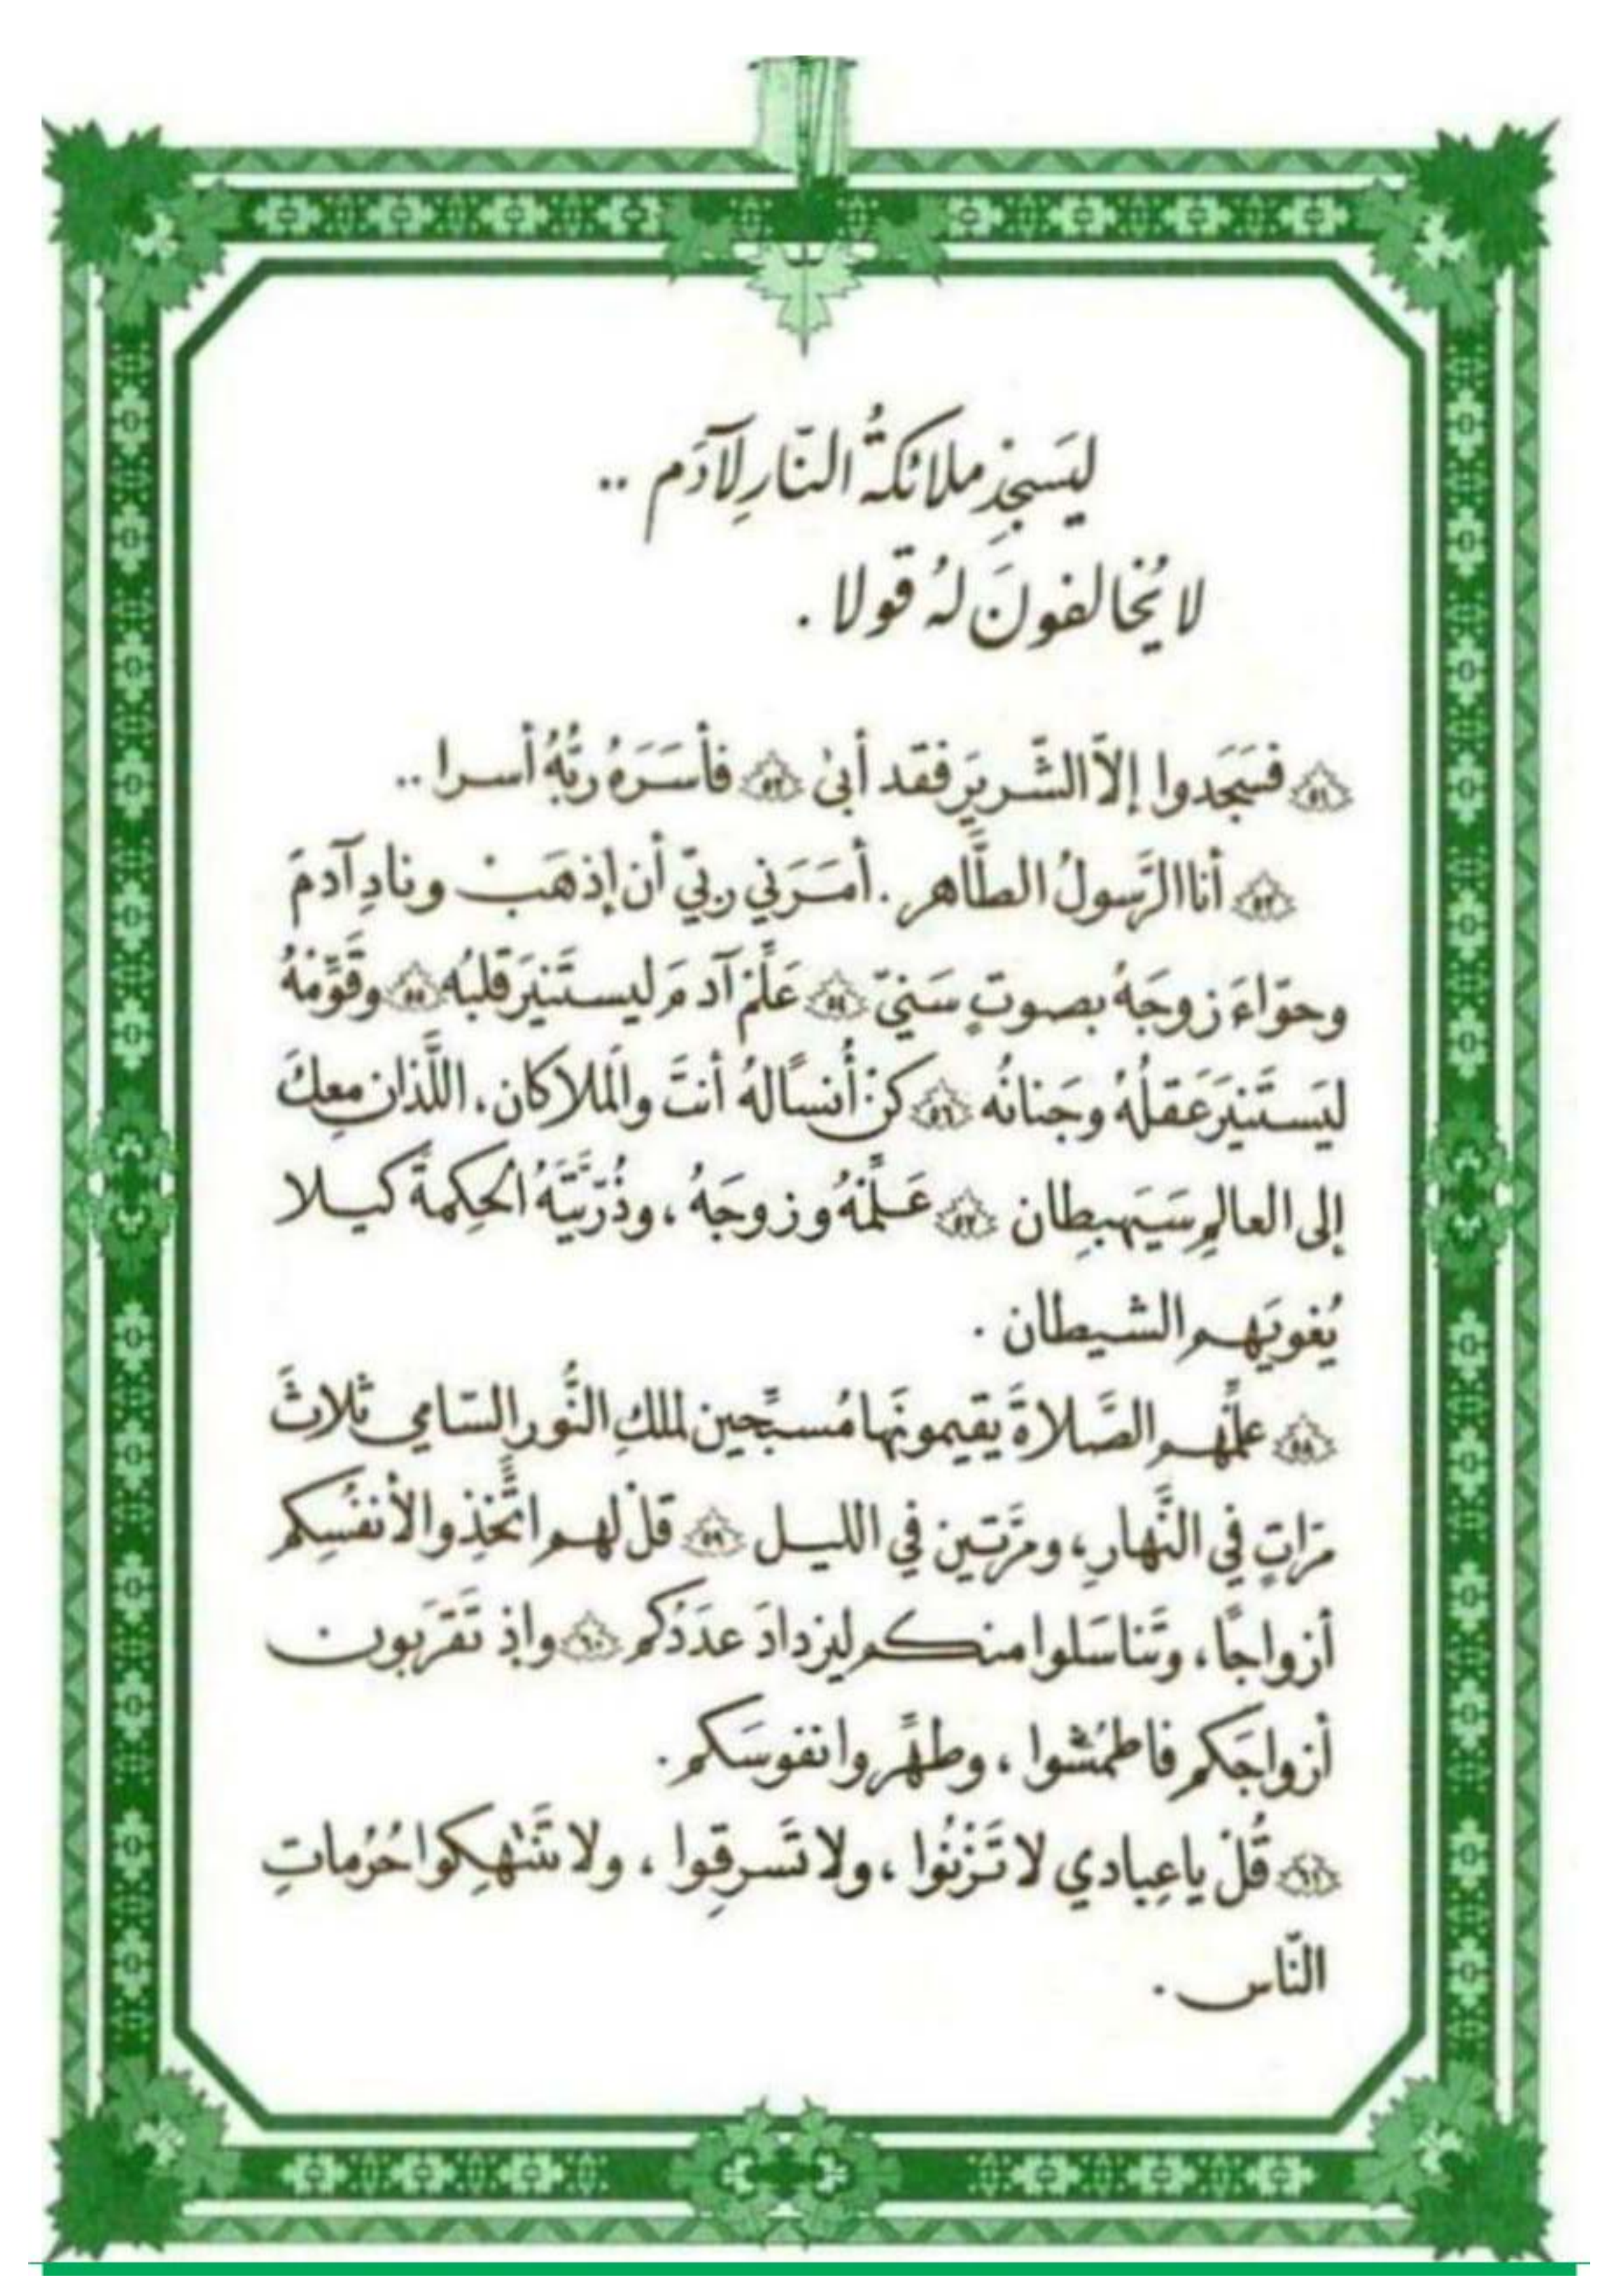 ليَسجُدْ ملائكةُ النّارِ لآدَم ..
لا يُخالفونَ لهُ قولا .
﴿٥١﴾ فسَجَدوا إلاّ الشّريرَ فقد أبىٰ ﴿٥٢﴾ فأسَرَهُ ربُّهُ أسرا ..
﴿٥٣﴾ أنا الرَّسولُ الطَّاهر . أمَرَني ربّي أن إذهَبْ ونادِ آدمَ
وحوّاءَ زوجَهُ بصوتٍ سَنيّ ﴿٥٤﴾ عَلِّمْ آدمَ ليستَنيرَ قلبُه ﴿٥٥﴾ وقَوِّمْهُ
ليَستَنيرَ عَقلُهُ وجَنانُه ﴿٥٦﴾ كنْ أُنسًا لهُ أنتَ والمَلاكان، اللَّذان معكَ
إلى العالمِ سَيَهبِطان ﴿٥٧﴾ عَلِّمْهُ وزوجَهُ، وذُرّيَّتَهُ الحِكمةَ كيلا
يُغويَهم الشيطان .
﴿٥٨﴾ علِّمْهم الصَّلاةَ يقيمونَها مُسبّحين لملكِ النُّور السّامي ثلاثَ
مرّاتٍ في النَّهارِ، ومرّتين في الليل ﴿٥٩﴾ قلْ لهم اتَّخِذوا لأنفُسِكم
أزواجًا، وتَناسَلوا منكم ليزدادَ عدَدُكم ﴿٦٠﴾ وإذ تَقرَبون
أزواجَكم فاطمُشوا، وطهِّروا نفوسَكم .
﴿٦١﴾ قُلْ ياعِبادي لا تَزْنُوا، ولا تَسرِقوا، ولا تَنْتهِكوا حُرُماتِ
النّاس .